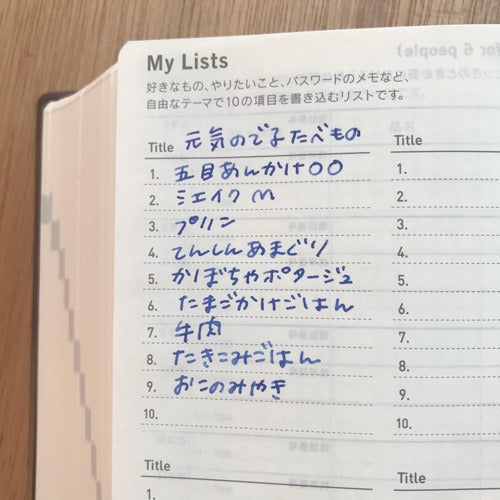 for 6 people)
My Lists
好きなもの、やりたいこと、パスワードのメモなど、
自由なテーマで10の項目を書き込むリストです。
Title 元気のでる たべもの
1. 五目あんかけ〇〇
2. シェイク M
3. プリン
4. てんしんあまぐり
5. かぼちゃポタージュ
6. たまごかけごはん
7. 牛肉
8. たきこみごはん
9. おこのみやき
10.
Title
1.
2.
3.
4.
5.
6.
7.
8.
9.
10.
Title
1.
Title
1.